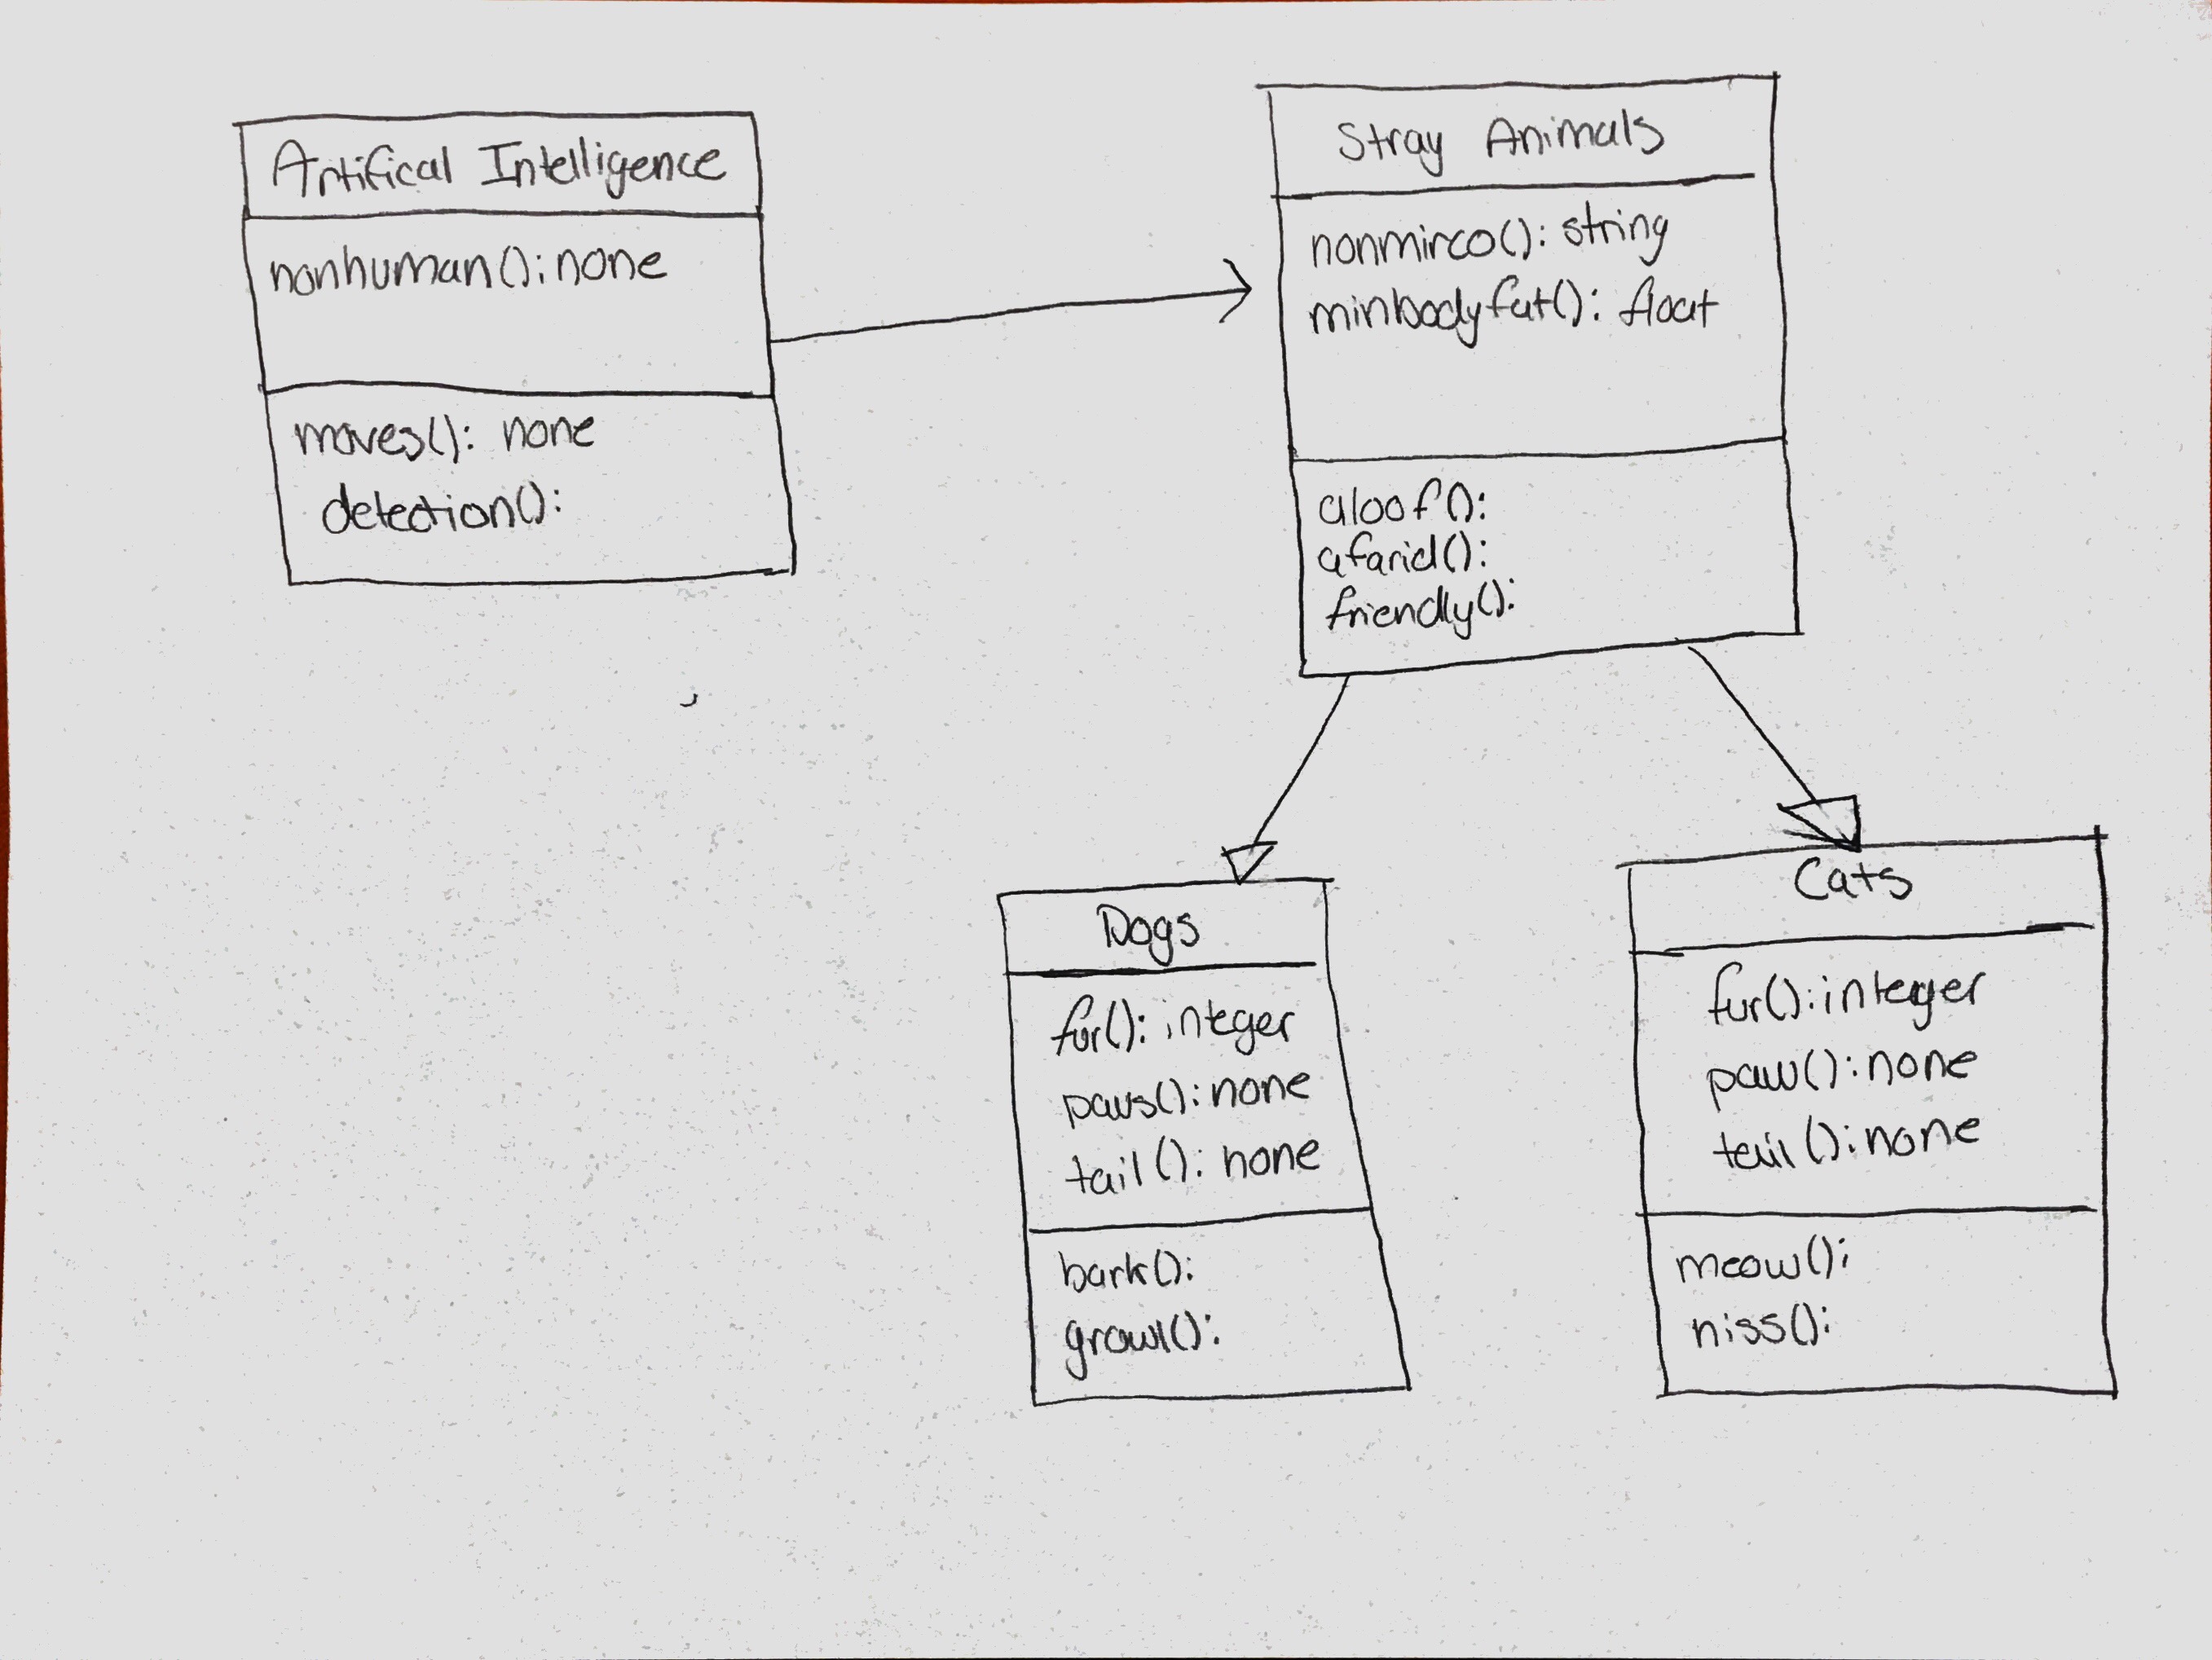 Artifical Intelligence
nonhuman(): none
moves(): none
detection():
Stray Animals
nonmirco(): string
minbodyfat(): float
aloof():
afarid():
friendly():
Dogs
fur(): integer
paws(): none
tail(): none
bark():
growl():
Cats
fur(): integer
paw(): none
tail(): none
meow():
hiss():